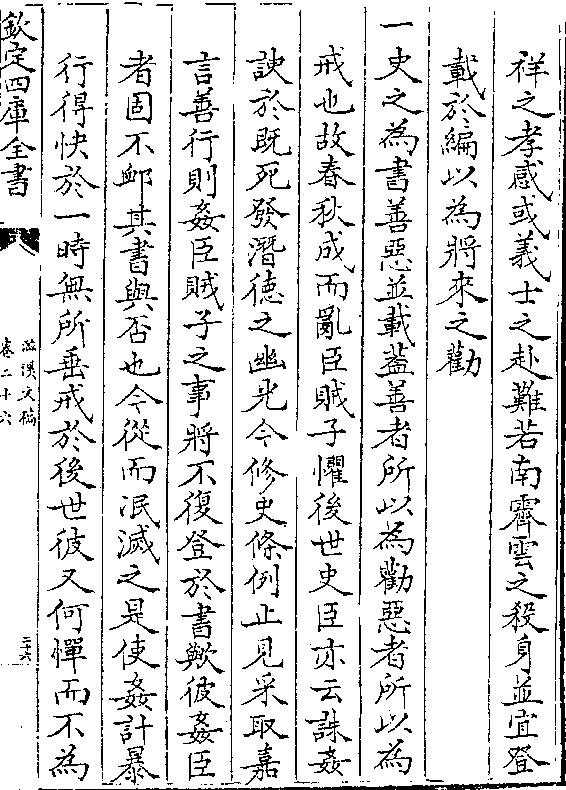 祥之孝感或義士之赴難若南霽雲之殺身並宜登
載於編以為將來之勸
一史之為書善惡並載葢善者所以為勸惡者所以為
戒也故春秋成而亂臣賊子懼後世史臣亦云誅姦
諛於既死發潛徳之幽光今修史條例止見采取嘉
言善行則姦臣賊子之事將不復登於書歟彼姦臣
者固不䘏其書與否也今從而泯滅之是使姦計暴
行得快於一時無所垂戒於後世彼又何憚而不為
欽定四庫全書
滋溪文稿
卷二十六
二十六